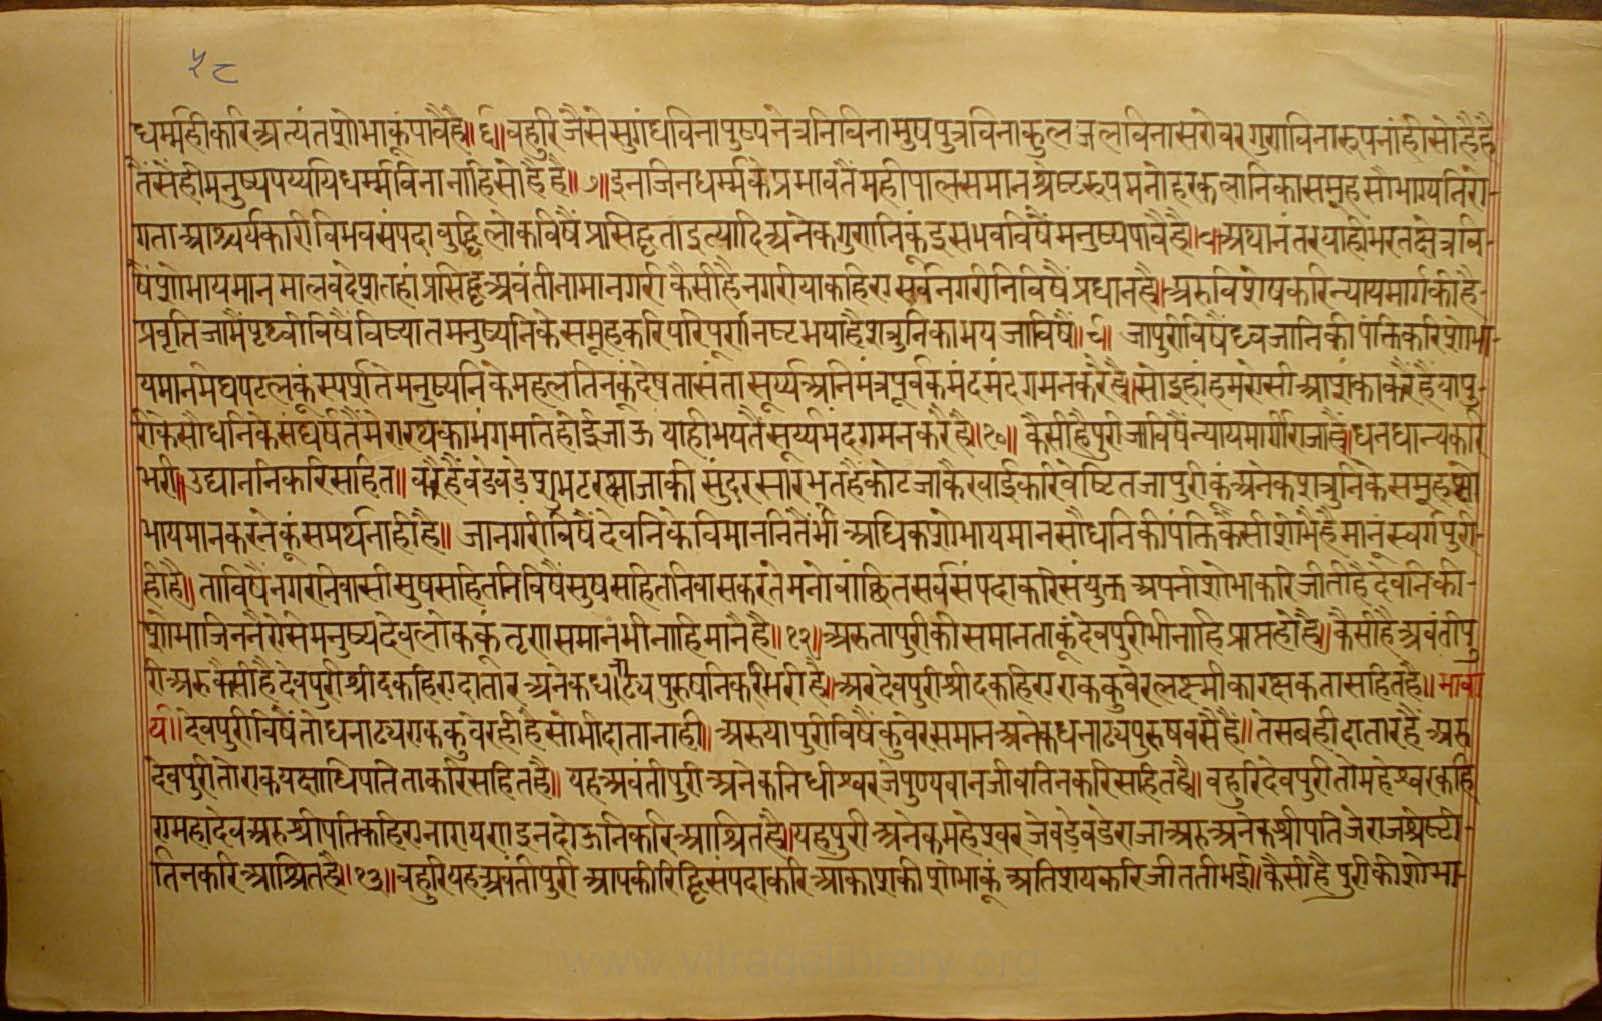 ५८
धर्म्महीकरि अत्यंतशोभाकूंपावैहै॥६॥बहुरिजैसेसुगंधविनापुष्पनेत्रनिविनामुषपुत्रविनाकुलजलविनासरोवरगुणविनारूपनांहीसोहैहै
तैंसेंहीमनुष्यपर्य्यायधर्म्मविनानाहिसोहैहै॥७॥इनजिनधर्म्मकेप्रभावतैंमहीपालसमानश्रष्टरूपमनोहरकलानिकासमूहसौभाग्यनिरो-
गताआश्चर्यकारीविभवसंपदाबुद्धिलोकविषैंप्रसिद्धताइत्यादिअनेकगुणनिकूंइसभवविषैंमनुष्यपावैहै॥८॥अथानंतरयाहीभरतक्षेत्रवि-
षैंशोभायमानमालवदेशतहांप्रसिद्धअवंतीनामानगरीकैसीहैनगरीयाकहिएसर्वनगरीनिविषैंप्रधानहै॥अरुविशेषकरिन्यायमार्गकीहै-
प्रवृतिजामैंपृथ्वीविषैंविष्यातमनुष्यनिकेसमूहकरिपरिपूर्णनष्टभयाहैशत्रुनिकाभयजाविषैं॥९॥जापुरीविषैंध्वजानिकीपंक्तिकरिशोभा-
यमानमेघपटलकूंस्पर्शतेमनुष्यनिकेमहलतिनकूंदेषतासंतासूर्य्यअनिमंत्रपूर्वकमंदमंदगमनकरैहै॥सोइहांहमएसीआशंकाकरैंहैंयापु-
रीकेसौधनिकेसंघर्षतैंमेरारथकाभंगमतिहोईजाऊयाहीभयतैंसूर्य्यमंदगमनकरैहै॥१०॥कैसीहैपुरीजाविषैंन्यायमार्गीराजाहै॥धनधान्यकरि
भरी॥उद्याननिकरिसहित॥वरैहैंबडेबडेशुभटरक्षाजाकीसुंदरसारभूतहैकोटजाकैखाईकरिवेष्टितजापुरीकूंअनेकशत्रुनिकेसमूहशो
भायमानकरनेकूंसमर्थनाहीहै॥जानगरीविषैंदेवनिकेविमाननितैंभीअधिकशोभायमानसौधनिकीपंक्तिकैसीशोभैहैमानूंस्वर्गपुरी-
हीहै॥ताविषैंनगरनिवासीसुषसहितनिविषैंसुषसहितनिवासकरतेमनोवांछितसर्वसंपदाकरिसंयुक्तअपनीशोभाकरिजीतीहैदेवनिकी-
शोभाजिननैंएसेमनुष्यदेवलोककूंतृणसमानंभीनाहिमानैहै॥१२॥अरुतापुरीकीसमानताकूंदेवपुरीभीनाहिप्राप्तहोहै॥कैसीहैअवंतीपु
रीअरुकैसीहैदेवपुरीश्रीदकहिएदातारअनेकधनाढ्यपुरुषनिकरिभरीहै॥अरदेवपुरीश्रीदकहिएएककुवेरलक्ष्मीकारक्षकतासहितहै॥भावा
र्थ॥देवपुरीविषैंतोधनाढ्यएककुवेरहीहैसोभीदातानाही॥अरुयापुरीविषैंकुवेरसमानअनेकधनाढ्यपुरुषवसैहैं॥तेसबहीदातारहैंअरु
देवपुरीतोएकयक्षाधिपतिताकरिसहितहै॥यहअवंतीपुरीअनेकनिधीश्वरजेपुण्यवानजीवतिनकरिसहितहै॥बहुरिदेवपुरीतोमहेश्वरकहि
एमहादेवअरुश्रीपतिकहिएनारायणइनदोऊनिकरिआश्रितहै॥यहपुरीअनेकमहेश्वरजेबडेबडेराजाअरुअनेकश्रीपतिजेराजश्रेष्टी-
तिनकरिआश्रितहै॥१३॥बहुरियहअवंतीपुरीआपकीरिद्धिसंपदाकरिआकाशकीशोभाकूंअतिशयकरिजीततीभई॥कैसीहैपुरीकीशोभा-
www.vitragelibrary.org